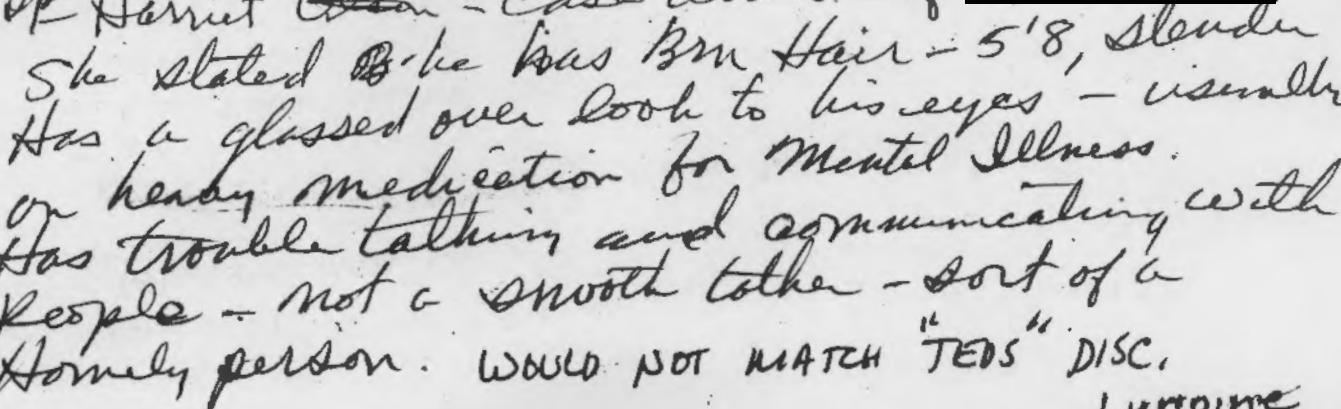 Harriet - Case
She stated he has Brn Hair - 5'8, slender
Has a glassed over look to his eyes - usually
on heavy medication for Mental Illness.
Has trouble talking and communicating with
People - not a smooth talker - sort of a
Homely person. WOULD NOT MATCH "TEDS" DISC.